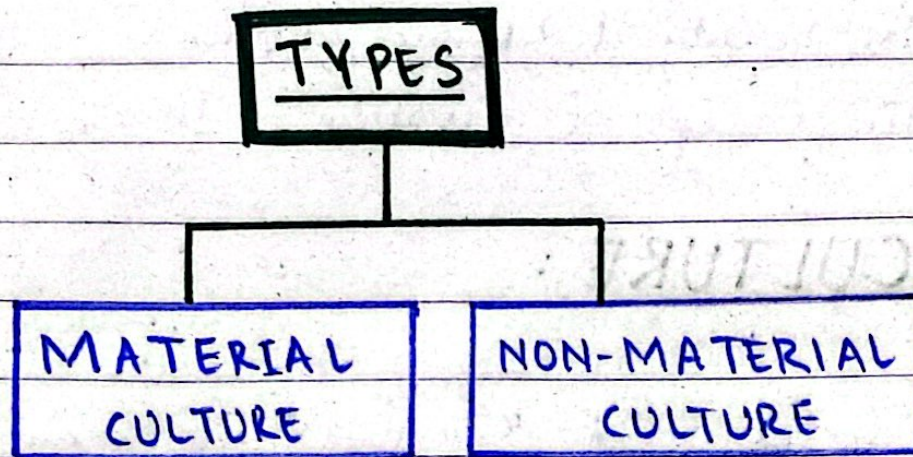 TYPES
MATERIAL
CULTURE
NON-MATERIAL
CULTURE